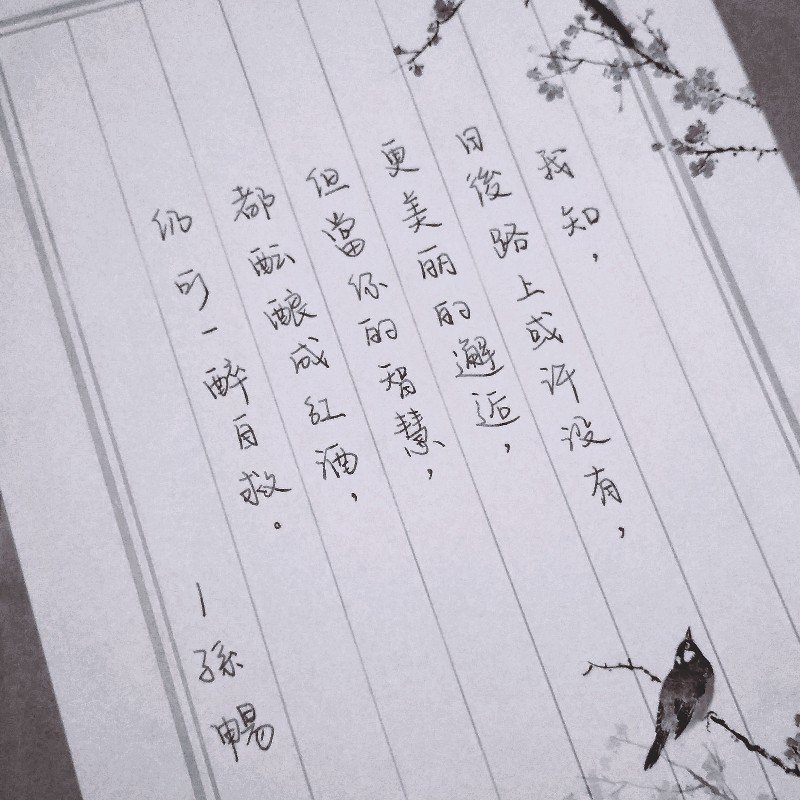 我知，
日後路上或许没有，
更美丽的邂逅，
但當你的智慧，
都酝酿成红酒，
仍可一醉自救。
—孫暢